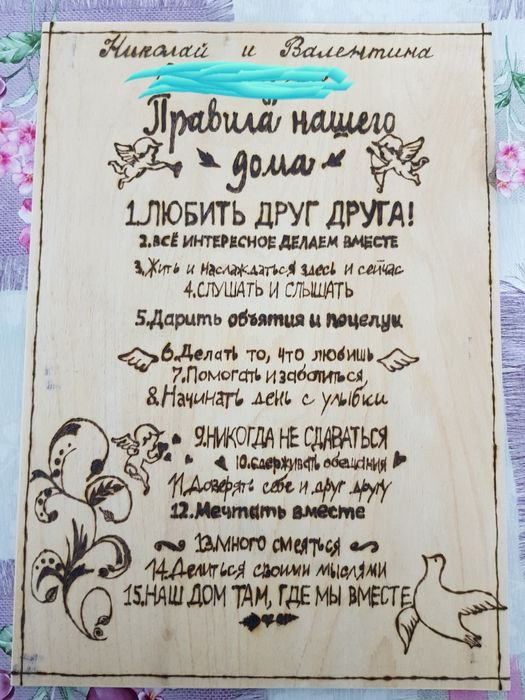 Николай и Валентина
Правила нашего
дома
1.ЛЮБИТЬ ДРУГ ДРУГА!
2.ВСЁ ИНТЕРЕСНОЕ ДЕЛАЕМ ВМЕСТЕ
3.Жить и наслаждаться здесь и сейчас
4.СЛУШАТЬ И СЛЫШАТЬ
5.Дарить объятия и поцелуи
6.Делать то, что любишь
7.Помогать и заботиться
8.Начинать день с улыбки
9.НИКОГДА НЕ СДАВАТЬСЯ
10.сдерживать обещания
11.Доверять себе и друг другу
12.Мечтать вместе
13.Много смеяться
14.Делиться своими мыслями
15.НАШ ДОМ ТАМ, ГДЕ МЫ ВМЕСТЕ